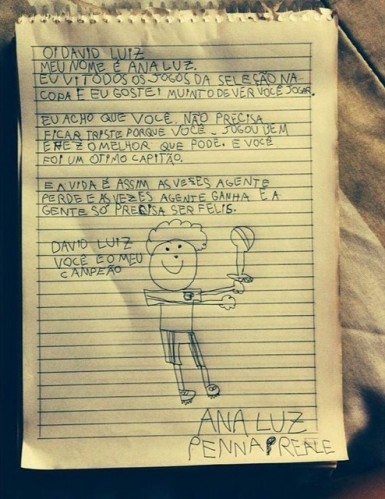 OI DAVID LUIZ
MEU NOME É ANA LUZ.
EU VI TODOS OS JOGOS DA SELEÇÃO NA
COPA E EU GOSTEI MUINTO DE VER VOCÊ JOGAR.
EU ACHO QUE VOCÊ NÃO PRECISA
FICAR TRISTE PORQUE VOCÊ JOGOU BEM
E FEZ O MELHOR QUE PODE. E VOCÊ
FOI UM OTIMO CAPITÃO.
E A VIDA É ASSIM AS VESES AGENTE
PERDE E AS VEZES AGENTE GANHA E A
GENTE SO PRECISA SER FELIS.
DAVID LUIZ
VOCÊ É O MEU
CANPEÃO
ANA LUZ
PENNA REALE